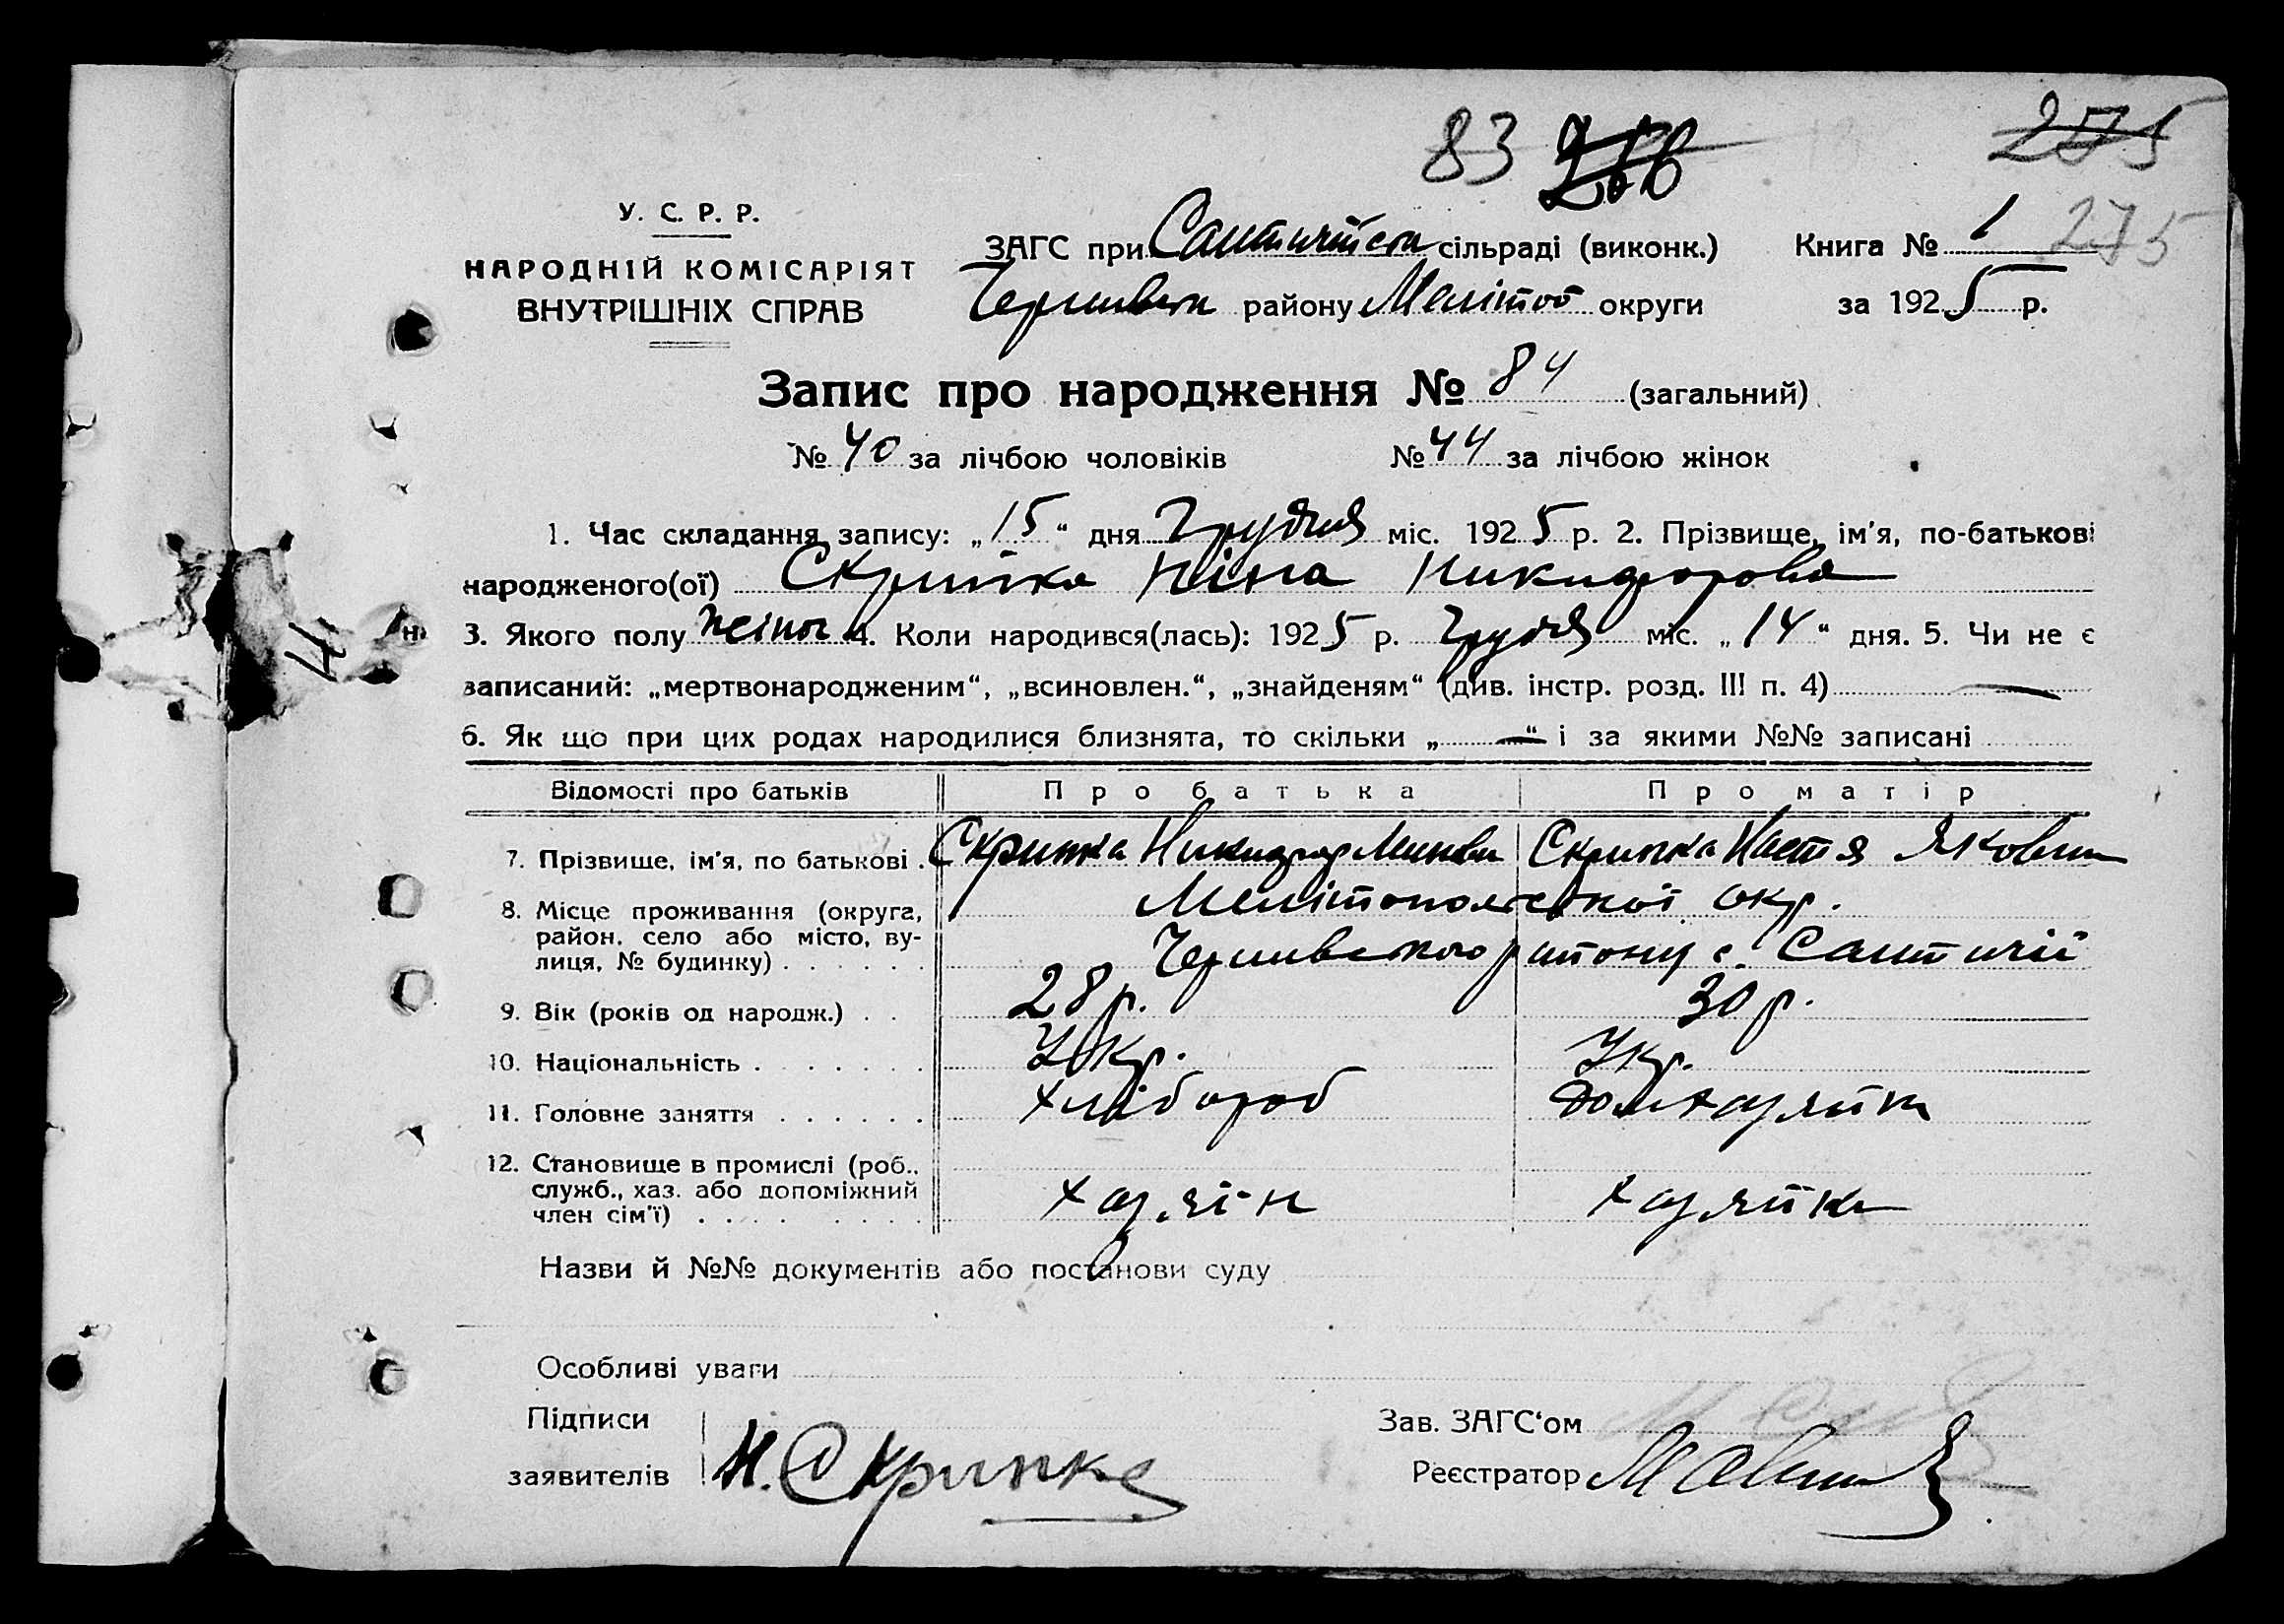 83 275
У. С. Р. Р.
НАРОДНІЙ КОМІСАРІЯТ
ВНУТРІШНІХ СПРАВ
ЗАГС при сільраді (виконк.) Книга № 1 275
району Меліто́п округи за 1925 р.
Запис про народження № 84 (загальний)
№ 40 за лічбою чоловіків № 44 за лічбою жінок
1. Час складання запису: „15“ дня Грудня міс. 1925 р. 2. Прізвище, ім'я, по-батькові
народженого(ої) Скрипка Ніна Никифоровна
3. Якого полу жіноч 4. Коли народився(лась): 1925 р. Грудня міс. „14“ дня. 5. Чи не є
записаний: „мертвонародженим“, „всиновлен.“, „знайденям“ (див. інстр. розд. III п. 4) —
6. Як що при цих родах народилися близнята, то скільки „—“ і за якими №№ записані
Відомості про батьків Про батька Про матір
7. Прізвище, ім'я, по батькові . Скрипка Никифор Скрипка Настя Яковин
8. Місце проживання (округа, Мелітопольської окр.
район. село або місто, ву-
лиця, № будинку) . . . . . . району с.
9. Вік (років од народж.) . . 28 р. 30 р.
10. Національність . . . . . . . Укр. Укр.
11. Головне заняття . . . . . . хлібороб домхазяйка
12. Становище в промислі (роб.,
служб., хаз. або допоміжний
член сім'ї) . . . . . . . . хазяїн хазяйка
Назви й №№ документів або постанови суду
Особливі уваги
Підписи Зав. ЗАГС‘ом
заявителів Н. Скрипка Реєстратор